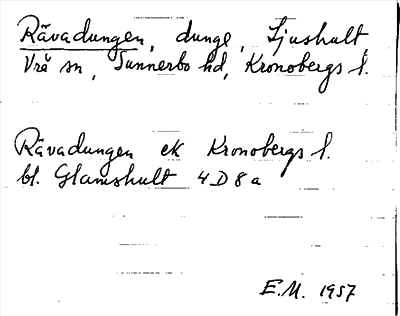 Rävadungen, dunge, Ljushult,
Vrå sn, Sunnerbo hd, Kronobergs l.
Rävadungen ek Kronobergs l.
bl. Glamshult 4D8a
E.M. 1957